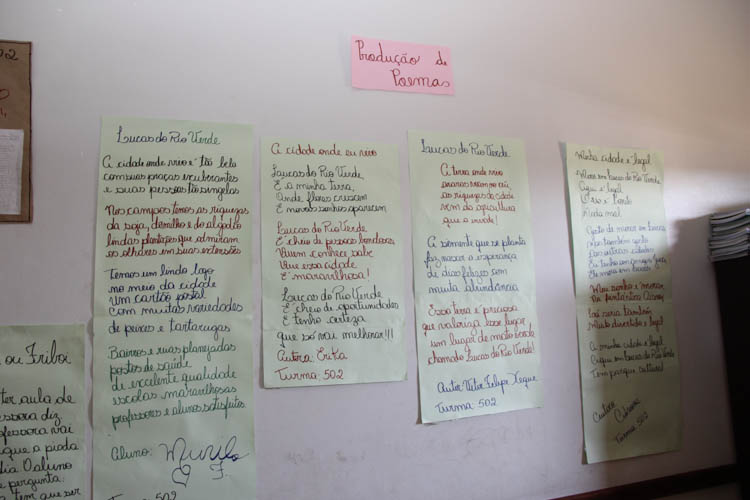 Produção de
Poemas
Lucas do Rio Verde
A cidade onde vivo é tão bela
com suas praças exuberantes
e suas pessoas tão singelas
Nos campos temos as riquezas
da soja, do milho e do algodão
lindas plantações que admiram
os olhares em suas extensões
Temos um lindo lago
no meio da cidade
um cartão postal
com muitas variedades
de peixes e tartarugas
Bairros e ruas planejadas
postos de saúde
de excelente qualidade
escolas maravilhosas
professores e alunos satisfeitos
Aluno: Murilo
F.
Turma 502
A cidade onde eu vivo
Lucas do Rio Verde,
É a minha terra,
Onde flores crescem
E novos sonhos aparecem
Lucas do Rio Verde
É cheio de pessoas bondosas,
Quem conhece sabe
Que essa cidade
É maravilhosa!
Lucas do Rio Verde
É cheio de oportunidades
E tenho certeza
que só vai melhorar!!!
Autora: Erika
Turma: 502
Lucas do Rio Verde
A terra onde vivo
as riquezas da cidade
vem da agricultura
que a envolve!
A semente que se planta
faz nascer a esperança
de dias felizes com
muita abundância
Essa terra é preciosa
que valoriza esse lugar
um lugar de mato verde
chamado Lucas do Rio Verde!
Autor: Vitor Felipe
Turma: 502
Minha cidade é legal
Moro em Lucas do Rio Verde
Aqui é legal
Nada mal
Gosto de morar em Lucas
Mas também gosto
das outras cidades
Meu sonho é morar
Lá seria também
Muito divertido e legal
A minha cidade é legal
Tem parque cultural
Autora
Turma 502
ou Friboi
ter aula de
ssora diz
ofessora vai
que a piada
dia o aluno
e pergunta:
tem que ser